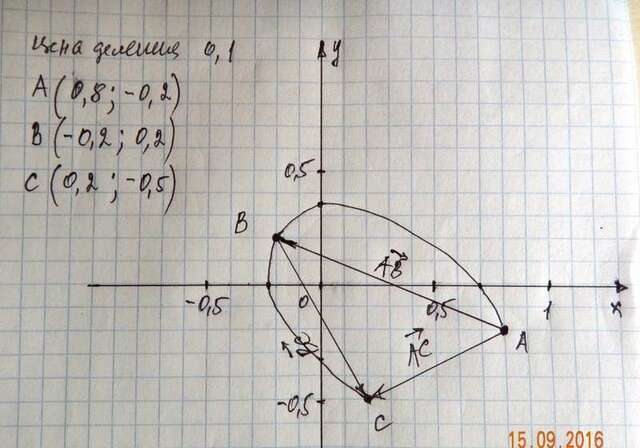 цена деления 0,1
A(0,8; -0,2)
B(-0,2; 0,2)
C(0,2; -0,5)
y
0,5
B
AB
-0,5
0
0,5
1
x
AC
A
-0,5
C
15.09.2016